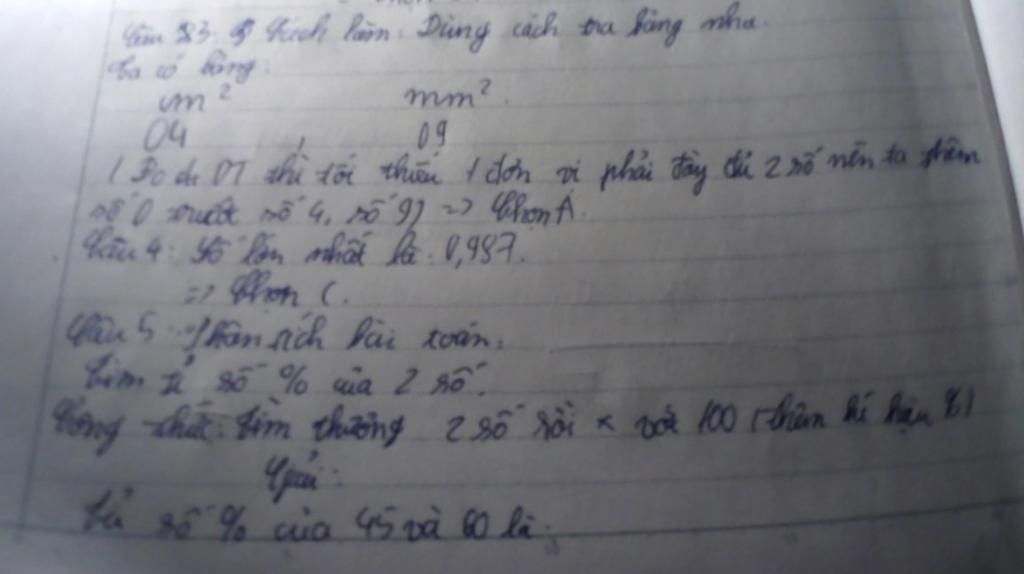 Câu 3: Cách làm: Dùng cách tra bảng nha.
Ta có bảng:
cm² mm².
04 , 09
(Do đv DT thì tối thiểu 1 đơn vị phải đầy đủ 2 số nên ta thêm
số 0 trước số 4, số 9) => Chọn A.
Câu 4: Số lớn nhất là: 0,987.
=> Chọn C.
Câu 5: Phân tích bài toán:
Tìm tỉ số % của 2 số.
Công thức: Tìm thương 2 số rồi × với 100 (thêm kí hiệu %)
Giải:
Tỉ số % của 45 và 60 là: